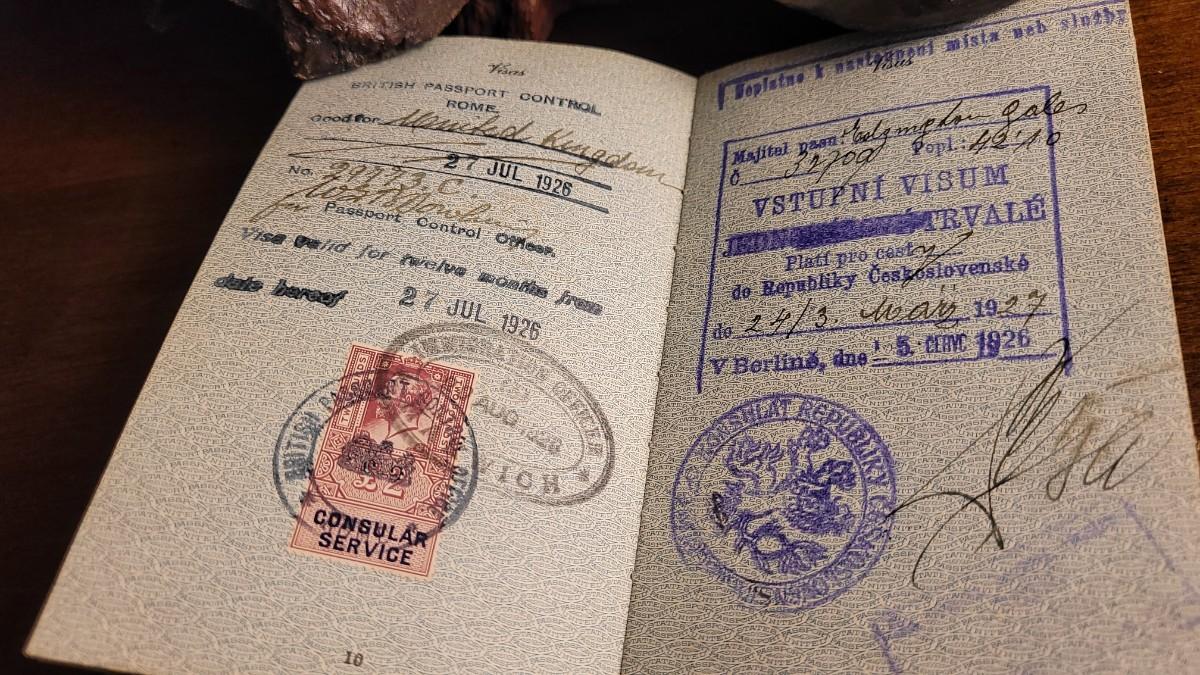 Visas
BRITISH PASSPORT CONTROL
ROME.
Good for United Kingdom
27 JUL 1926
No.
for Passport Control Officer.
Visa valid for twelve months from
date hereof 27 JUL 1926
IMMIGRATION OFFICER
AUG 1926
HARWICH
BRITISH PASSPORT
£2
CONSULAR
SERVICE
10
Visas
Neplatne k nastoupení místa neb služby
Majitel pasu:
Č 32709 Popl.: 42'10
VSTUPNÍ VISUM
TRVALÉ
Platí pro cesty
do Republiky Československé
do 24/3. März 1927
V Berlíně, dne 5. ČERVC 1926
KONSULÁT REPUBLIKY ČESKOSLOVENSKÉ